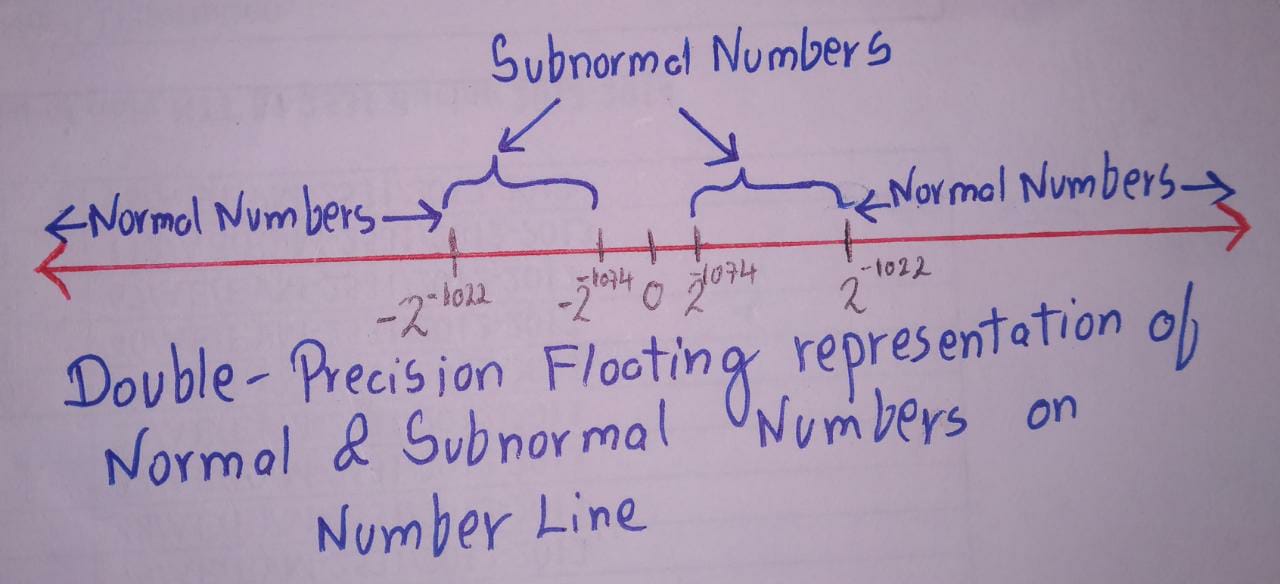 Subnormal Numbers
←Normal Numbers→ ←Normal Numbers→
-2^-1022 -2^-1074 0 2^-1074 2^-1022
Double-Precision Floating representation of
Normal & Subnormal Numbers on
Number Line